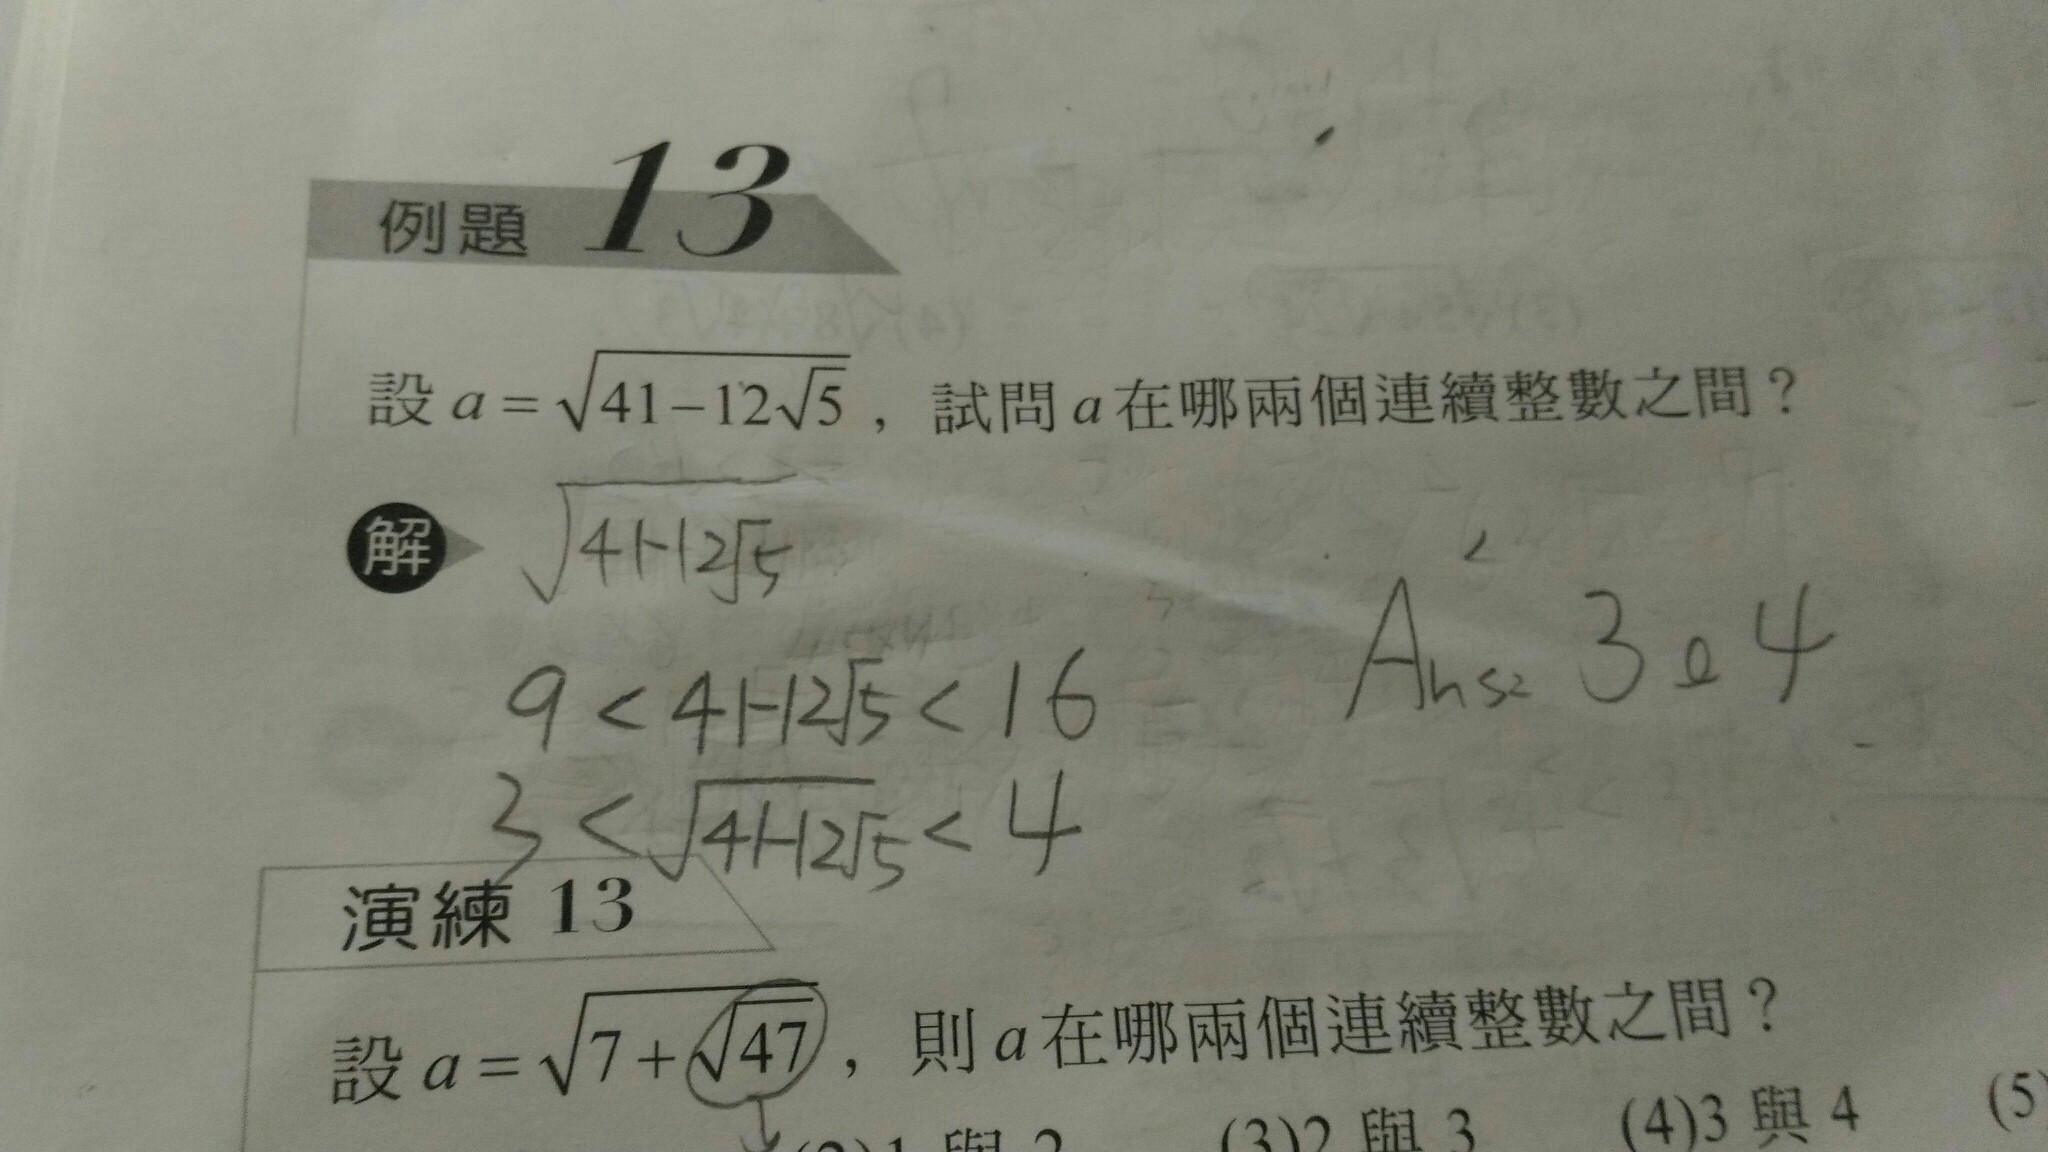 例題 13
設 a = √(41-12√5) , 試問 a 在哪兩個連續整數之間？
解 √(41-12√5)
9 < 41-12√5 < 16
3 < √(41-12√5) < 4
Ans: 3 4
演練 13
設 a = √(7+√47) , 則 a 在哪兩個連續整數之間？
(2)1 與 2 (3)2 與 3 (4)3 與 4 (5)